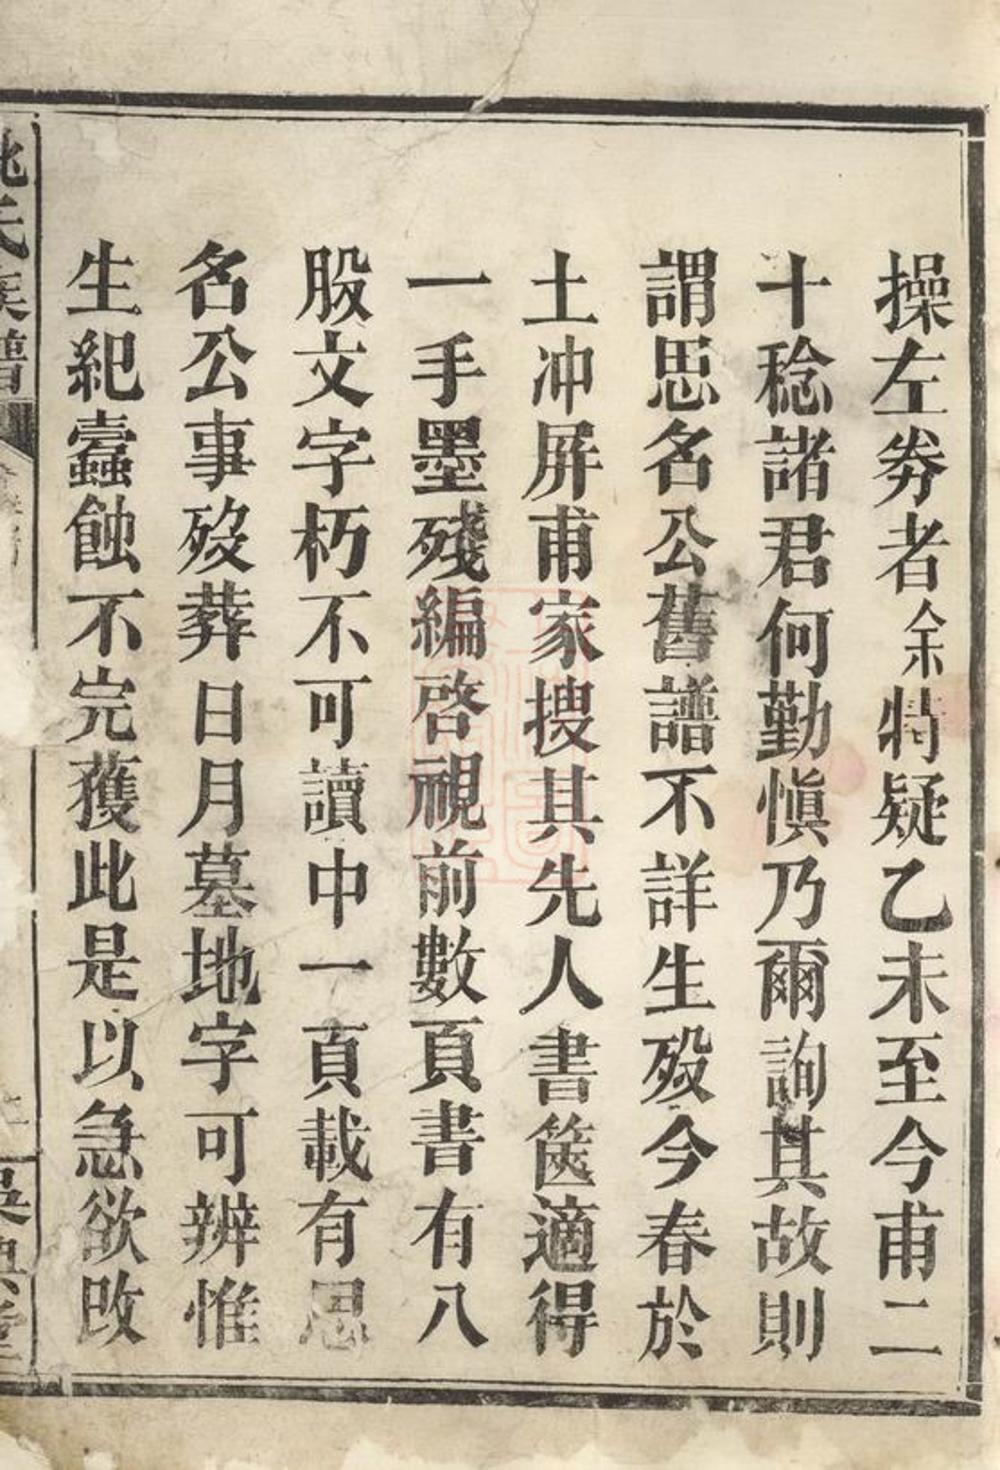 操左劵者余特疑乙未至今甫二
十稔諸君何勤慎乃爾詢其故則
謂思名公舊譜不詳生歿今春於
土冲屏甫家搜其先人書篋適得
一手墨殘編啓視前數頁書有八
股文字朽不可讀中一頁載有思
名公事歿葬日月墓地字可辨惟
生紀蠹蝕不完獲此是以急欲改
氏族譜